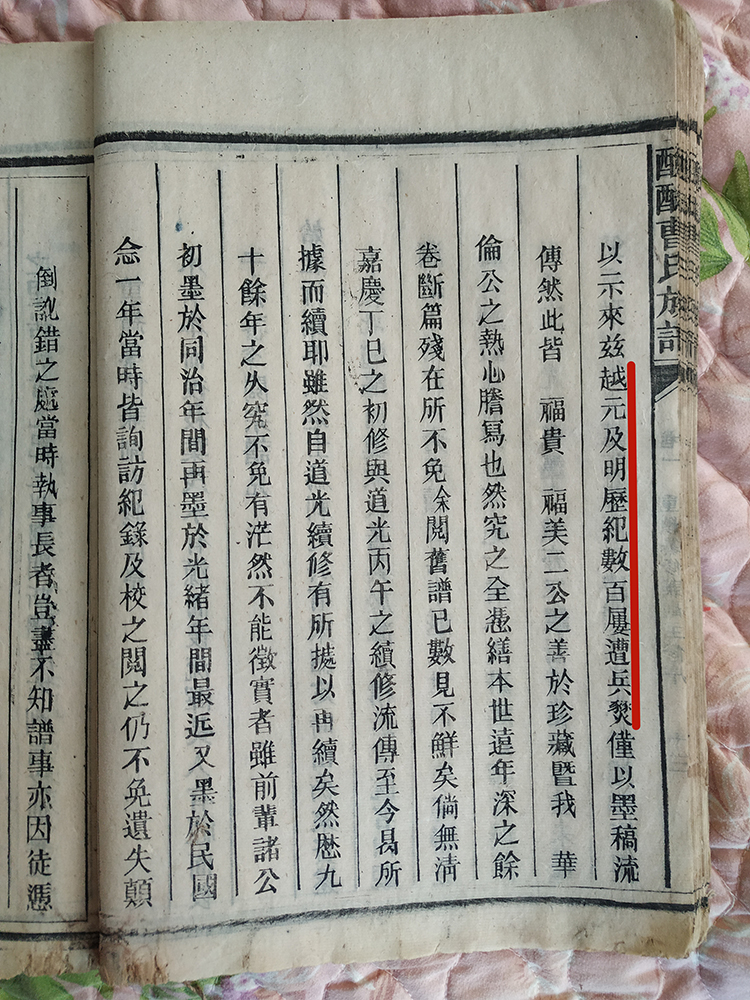 曹氏族譜
以示來茲越元及明歷紀數百屢遭兵燹僅以墨稿流
傳然此皆 福貴 福美二公之善於珍藏曁我 華
倫公之熱心謄寫也然究之全憑繕本世遠年深之餘
卷斷篇殘在所不免余閱舊譜已數見不鮮矣倘無淸
嘉慶丁巳之初修與道光丙午之續修流傳至今曷所
據而續耶雖然自道光續修有所據以再續矣然歷九
十餘年之久究不免有茫然不能徵實者雖前輩諸公
初墨於同治年間再墨於光緒年間最近又墨於民國
念一年當時皆詢訪紀錄及校之閱之仍不免遺失顛
倒訛錯之處當時執事長者豈盡不知譜事亦因徒憑